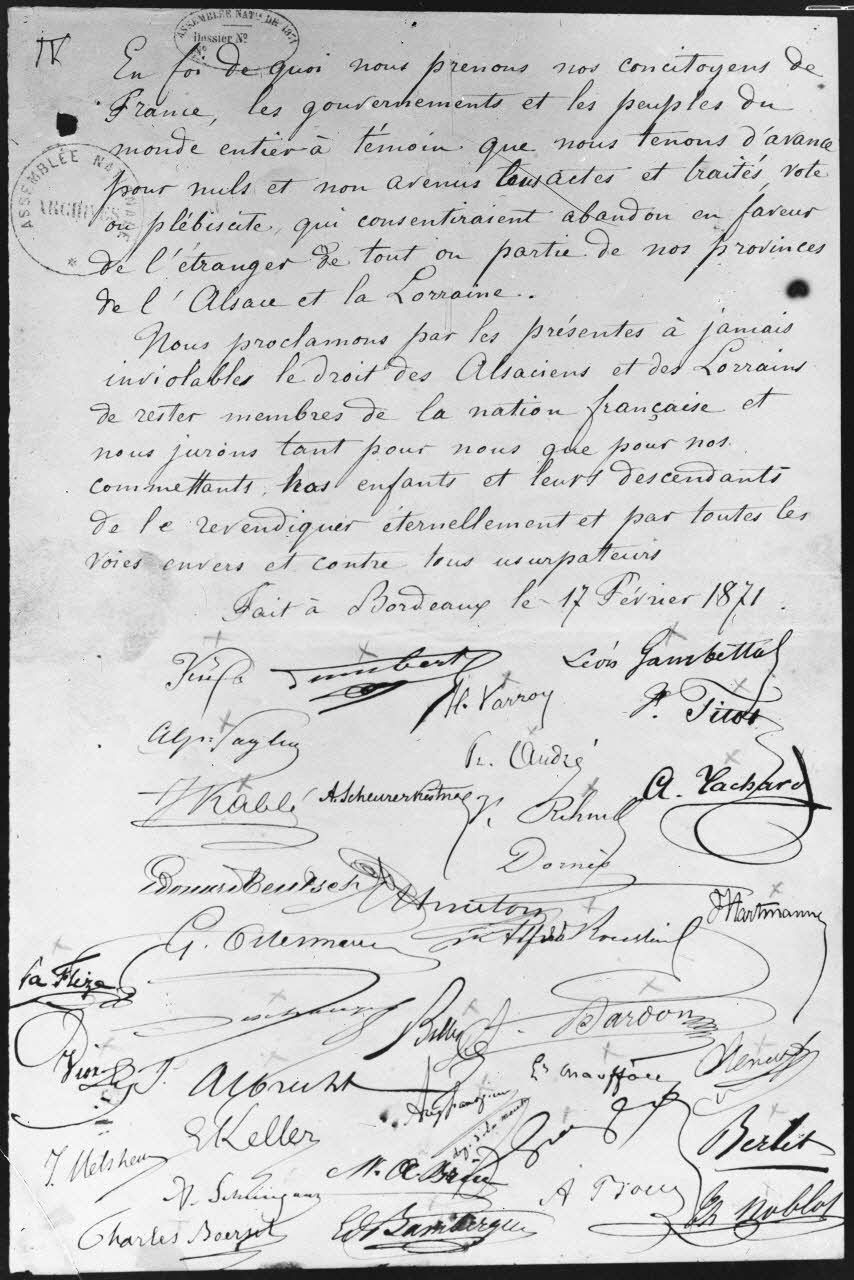 IV
ASSEMBLÉE NATle DE 1871
Dossier No
No
En foi de quoi nous prenons nos concitoyens de
France, les gouvernements et les peuples du
monde entier à témoin que nous tenons d'avance
pour nuls et non avenus tous actes et traités, vote
ou plébiscite, qui consentiraient abandon en faveur
de l'étranger de tout ou partie de nos provinces
de l'Alsace et la Lorraine.
ASSEMBLÉE NATIONALE
ARCHIVES
Nous proclamons par les présentes à jamais
inviolables le droit des Alsaciens et des Lorrains
de rester membres de la nation française et
nous jurons tant pour nous que pour nos
commettants, nos enfants et leurs descendants
de le revendiquer éternellement et par toutes les
voies envers et contre tous usurpateurs
Fait à Bordeaux le 17 Février 1871.
Humbert Léon Gambetta
H. Varroy P. Titot
Alp. Saglio
Fr. André
Kablé A. Scheurer Kestner A. Tachard
V. Rehm
Dornès
Edouard Teutsch
G. Ostermann Alfred Koechlin Hartmann
La Flize
Deschange Billy Bardon
Viox Albrecht Chauffour
J. Melsheim E Keller Berlet
N. Schneegans
Charles Boersch Ed Bamberger A Boell Ch Noblot